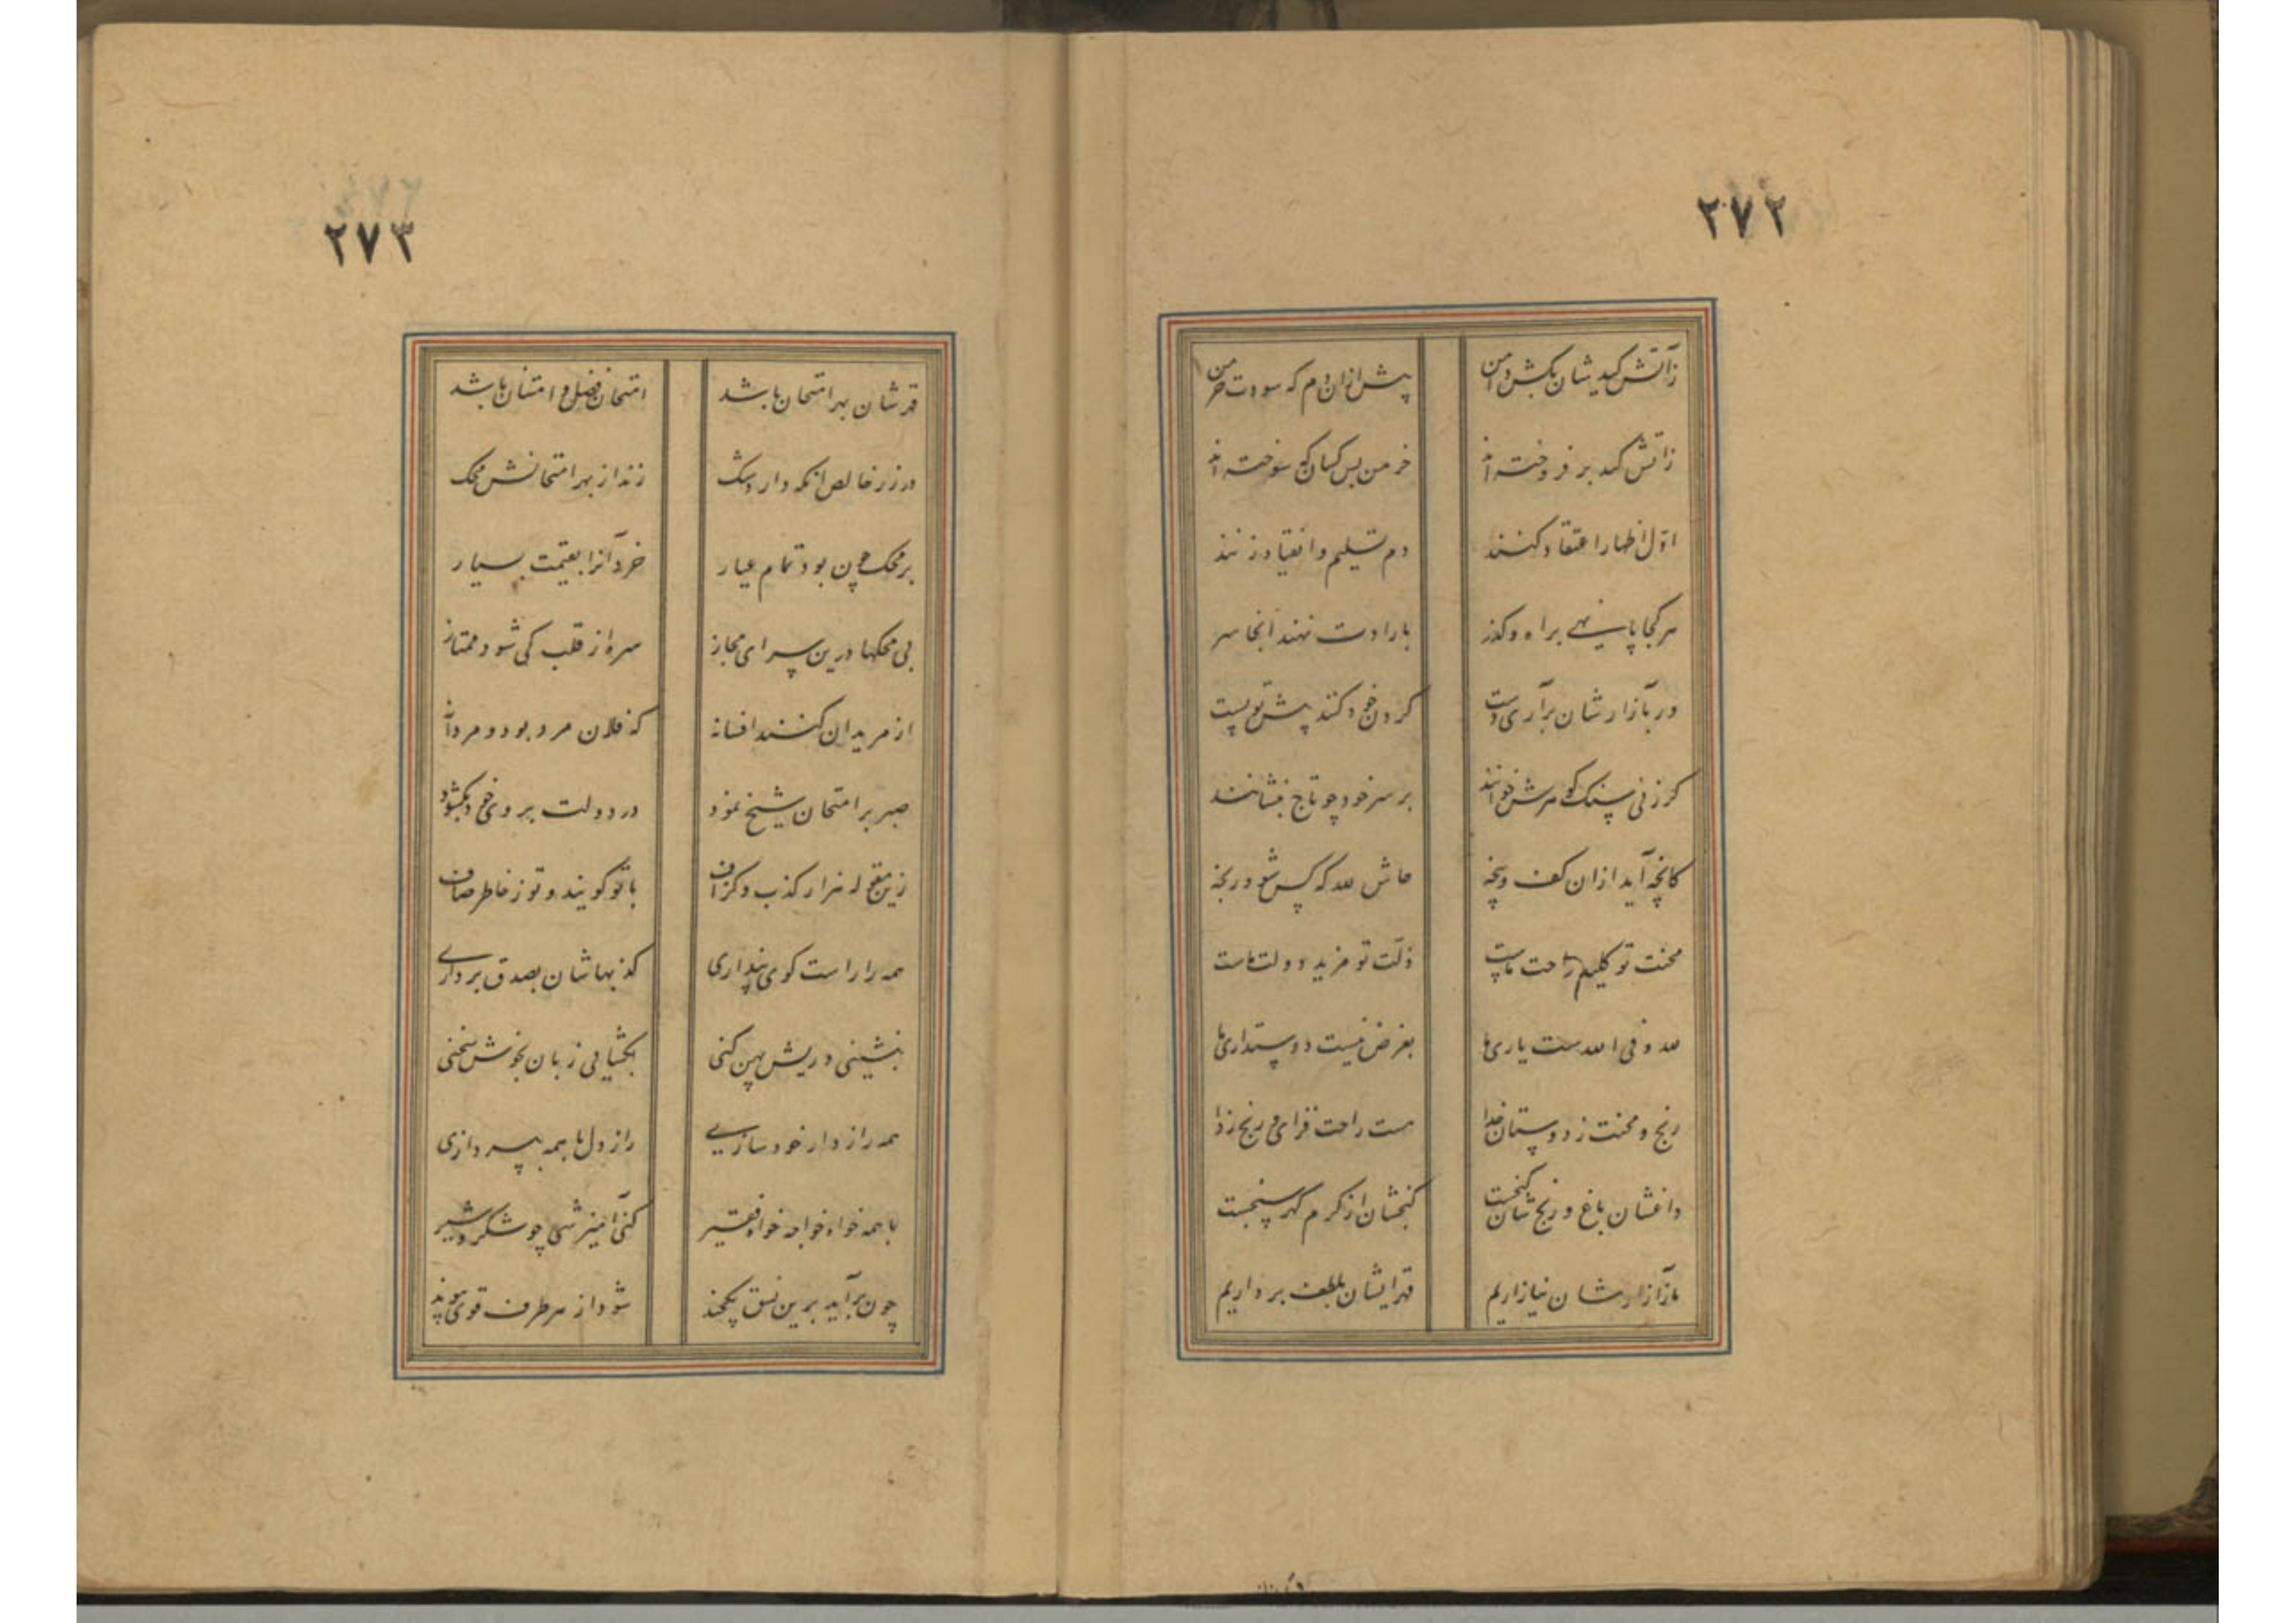 ۲۷۲
زآتش کیدشان بکش دامن پیش ازان دم که سوزدت خرمن
زآتش کید بر فروخته‌اند خرمن بس کسان که سوخته‌اند
اوّل اظهار اعتقاد کنند دم تسلیم وانقیاد زنند
هر کجا پا نهی براه وکذر بارادت نهند آنجا سر
ور بآزارشان برآری دست کردن خود کنند پیش تو پست
کر زنی سنک کوهرش خوانند بر سر خود چو تاج بنشانند
کانچه آید ازان کف وپنجه حاش لله که کس شود رنجه
محنت تو کلید راحت ماست ذلّت تو مزید دولت ماست
لله وفی الله ست یاری‌ها بغرض نیست دوستداری‌ها
رنج ومحنت ز دوستان خدا هست راحت فزای ورنج زدا
داغشان باغ ورنج شان کنجست کنجشان از کرم کهرسنجست
ما زآزارشان نیازاریم قهر ایشان بلطف برداریم
۲۷۳
قهرشان بهر امتحان باشد امتحان فضل وامتنان باشد
در زر خالص آنکه دارد شک زند از بهر امتحانش محک
بر محک چون بود تمام عیار خرد آنرا بقیمت بسیار
بی محکها درین سرای مجاز سره از قلب کی شود ممتاز
از مریدان کنند افسانه که فلان مرد بود ومردانه
صبر بر امتحان شیخ نمود در دولت بروی خود بکشود
زین مقوله هزار کذب وکزاف با تو کویند وتو ز خاطر صاف
همه را راست کوی پنداری کذبهاشان بصدق برداری
بنشینی وریش پهن کنی بکشایی زبان بخوش سخنی
همه را رازدار خود سازی راز دل با همه بپردازی
با همه خواه خواجه خواه فقیر کنی آمیزشی چو شکر وشیر
چون برآید برین نسق یکچند شود از هر طرف قوی پیوند